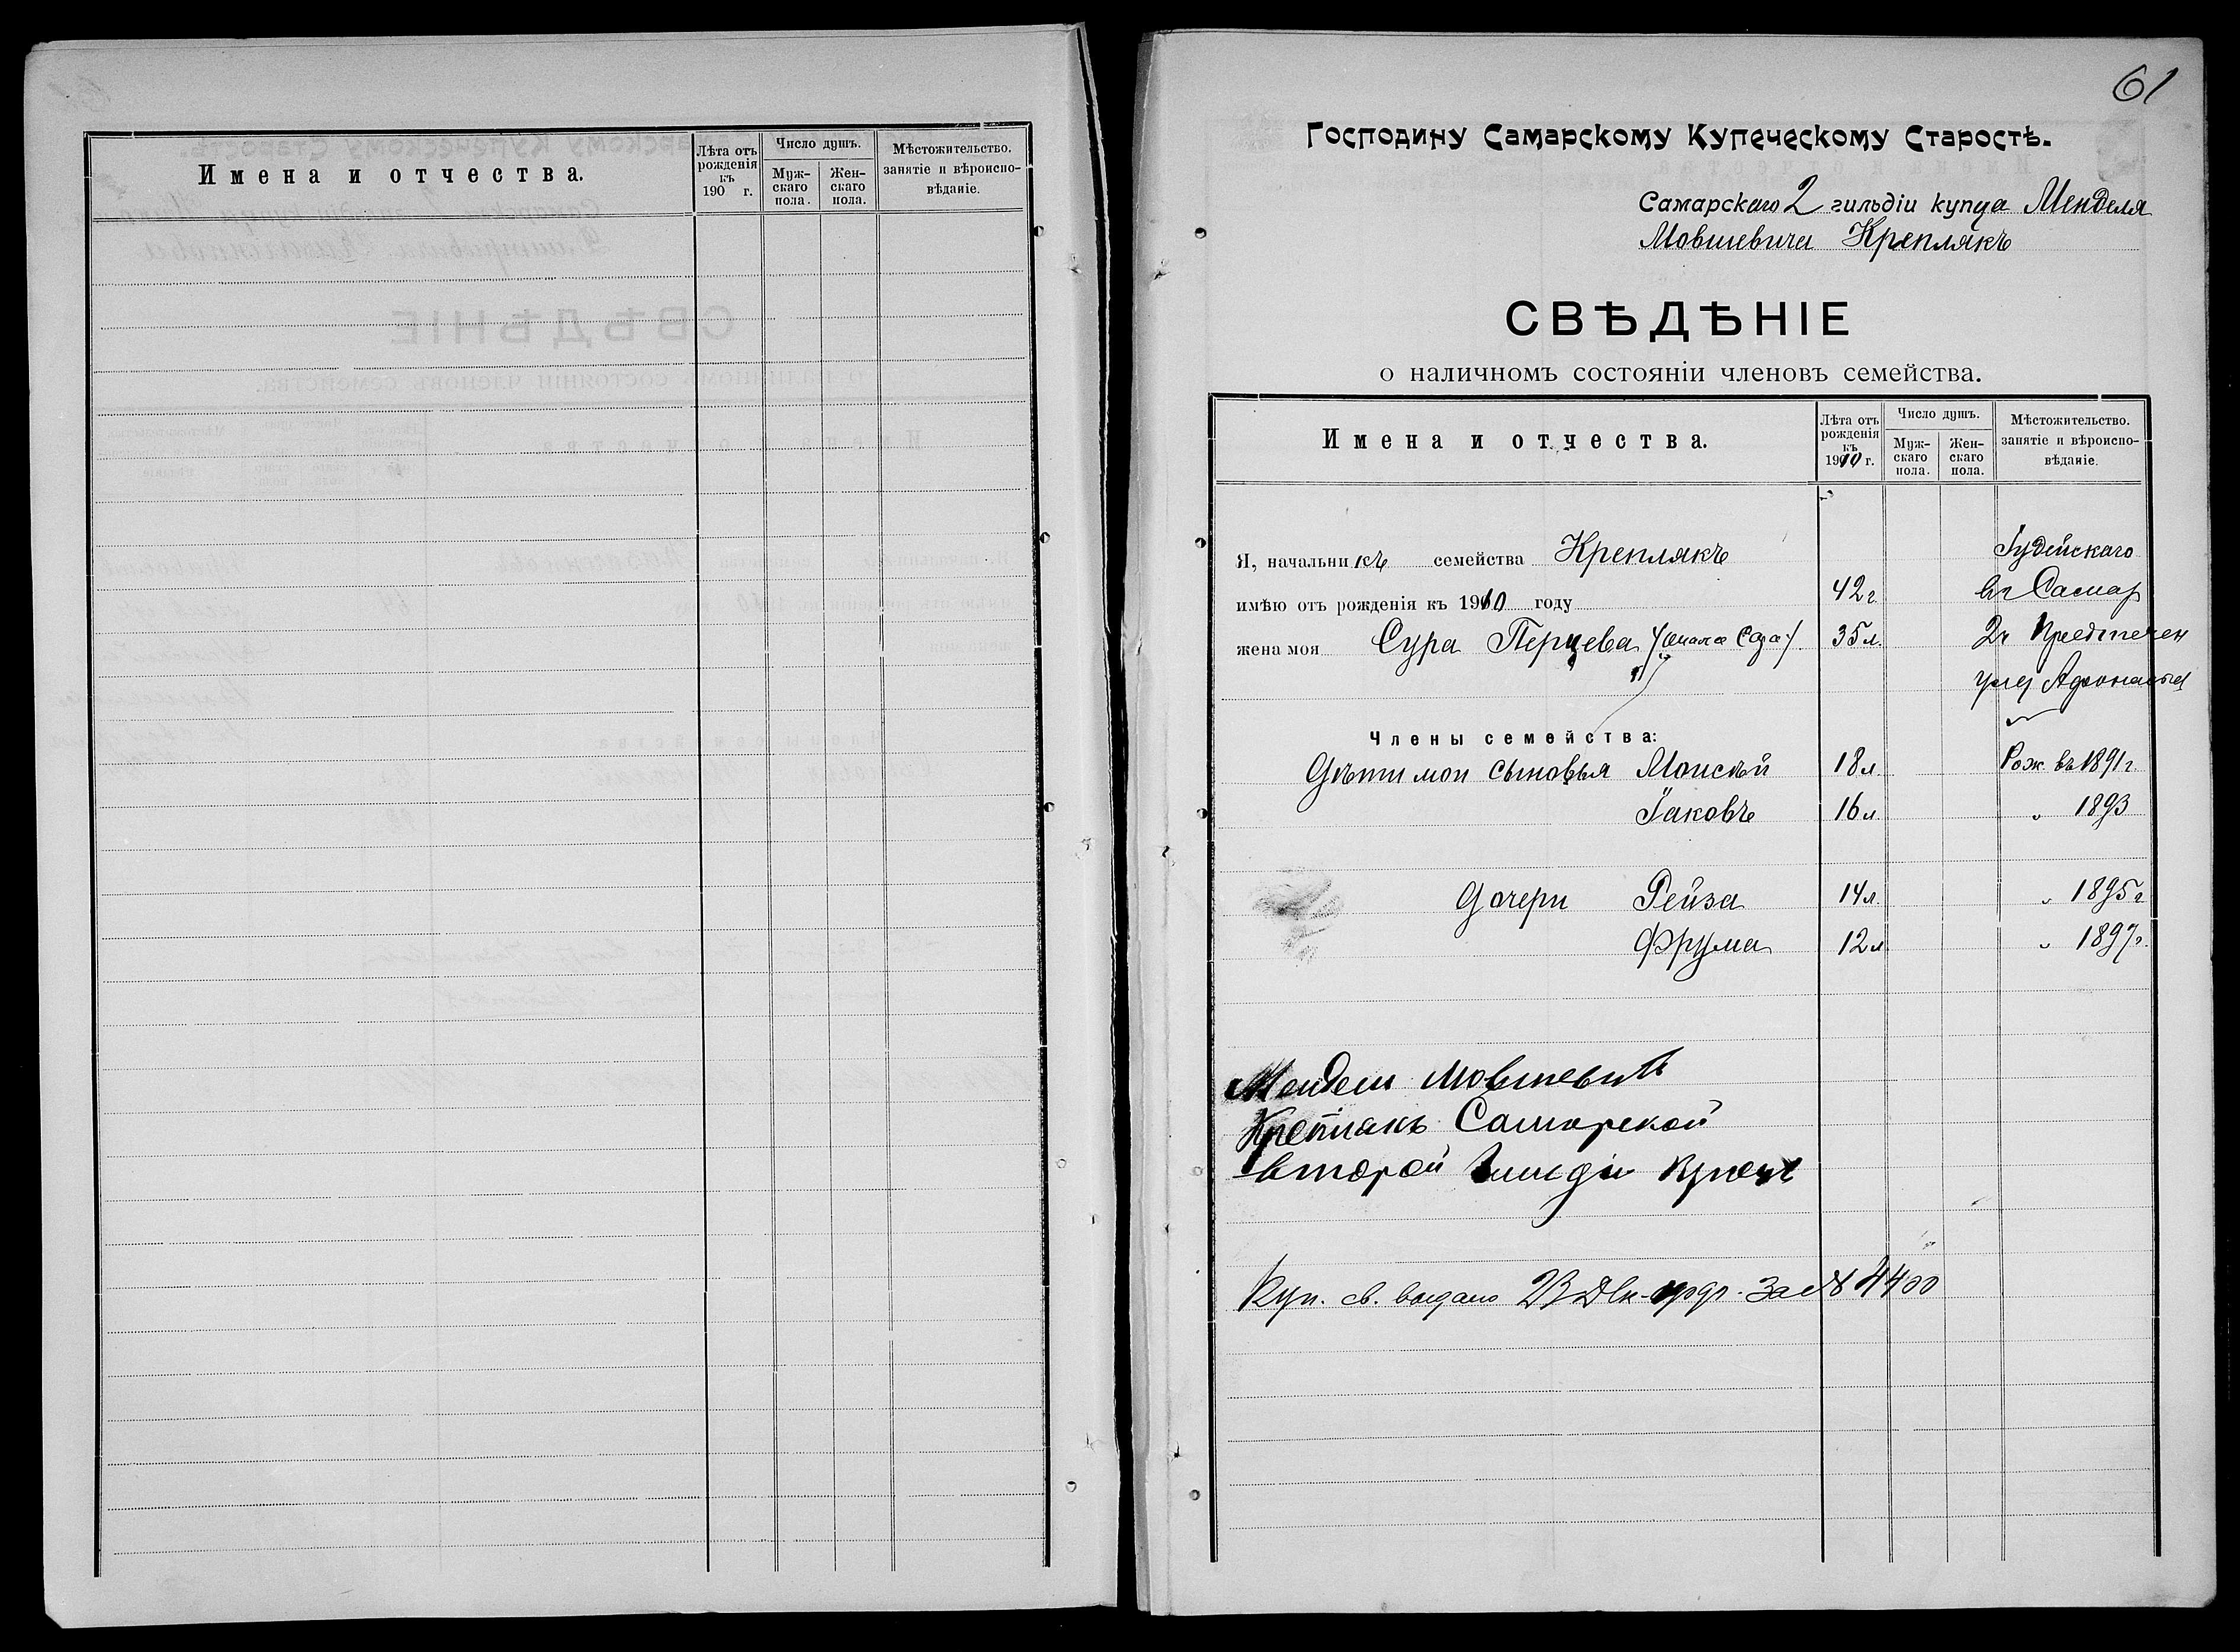 Имена и отчества.
Лѣта отъ рожденія къ 190 г.
Число душъ.
Муж-скаго пола.
Жен-скаго пола.
Мѣстожительство. занятіе и вѣроиспо-вѣданіе.
61
Господину Самарскому Купеческому Старостѣ.
Самарскаго 2 гильдіи купца Менделя
Мовшевича Креплякъ
СВѢДѢНІЕ
о наличномъ состояніи членовъ семейства.
Имена и отчества.
Лѣта отъ рожденія къ 1910 г.
Число душъ.
Муж-скаго пола.
Жен-скаго пола.
Мѣстожительство. занятіе и вѣроиспо-вѣданіе.
Я, начальникъ семейства Креплякъ Іудейскаго
имѣю отъ рожденія къ 1910 году 42 г. въ Самар
жена моя Сура Перцева 35 л.
Члены семейства:
Дѣти мои сыновья Моисѣй 18 л. Рож. въ 1891 г.
Іаковъ 16 л. " 1893
Дочери Рейза 14 л. " 1895 г
Фрума 12 л " 1897 г.
Мендель Мовшевичъ
Креплякъ Самарской
второй
Куп. св. выдано 23 Дек. за № 4400